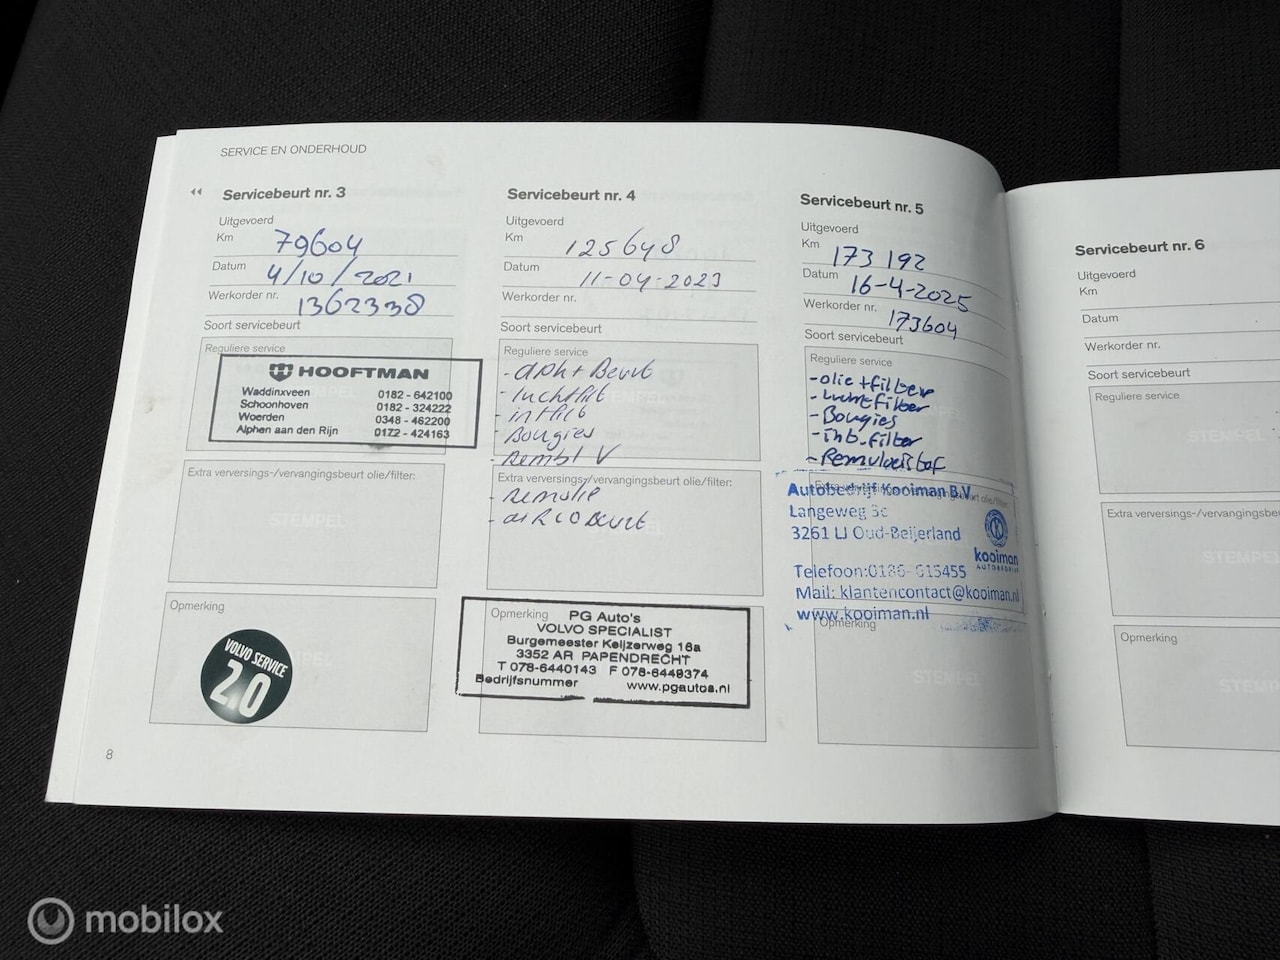 SERVICE EN ONDERHOUD
Servicebeurt nr. 3
Uitgevoerd
Km 79604
Datum 4/10/2021
Werkorder nr. 1362338
Soort servicebeurt
Reguliere service
HOOFTMAN
Waddinxveen 0182 - 642100
Schoonhoven 0182 - 324222
Woerden 0348 - 462200
Alphen aan den Rijn 0172 - 424163
Extra verversings-/vervangingsbeurt olie/filter:
STEMPEL
Opmerking
VOLVO SERVICE
2.0
8
Servicebeurt nr. 4
Uitgevoerd
Km 125648
Datum 11-04-2023
Werkorder nr.
Soort servicebeurt
Reguliere service
- Beurt
- luchtfilt
- intflit
- Bougies
- Rembl V
Extra verversings-/vervangingsbeurt olie/filter:
- Remolie
- airco Beurt
Opmerking
PG Auto's
VOLVO SPECIALIST
Burgemeester Keijzerweg 16a
3352 AR PAPENDRECHT
T 078-6440143 F 078-6449374
Bedrijfsnummer www.pgautos.nl
Servicebeurt nr. 5
Uitgevoerd
Km 173192
Datum 16-4-2025
Werkorder nr. 173604
Soort servicebeurt
Reguliere service
- olie+filter
- Luchtfilter
- Bougies
- int.filter
- Remvloeistof
Autobedrijf Kooiman B.V.
Langeweg 3c
3261 LJ Oud-Beijerland
kooiman
AUTOBEDRIJF
Telefoon:0186- 615455
Mail: klantencontact@kooiman.nl
www.kooiman.nl
Opmerking
STEMPEL
Servicebeurt nr. 6
Uitgevoerd
Km
Datum
Werkorder nr.
Soort servicebeurt
Reguliere service
STEMPEL
Extra verversings-/vervangingsbeu
STEMPEL
Opmerking
STEMPE
mobilox